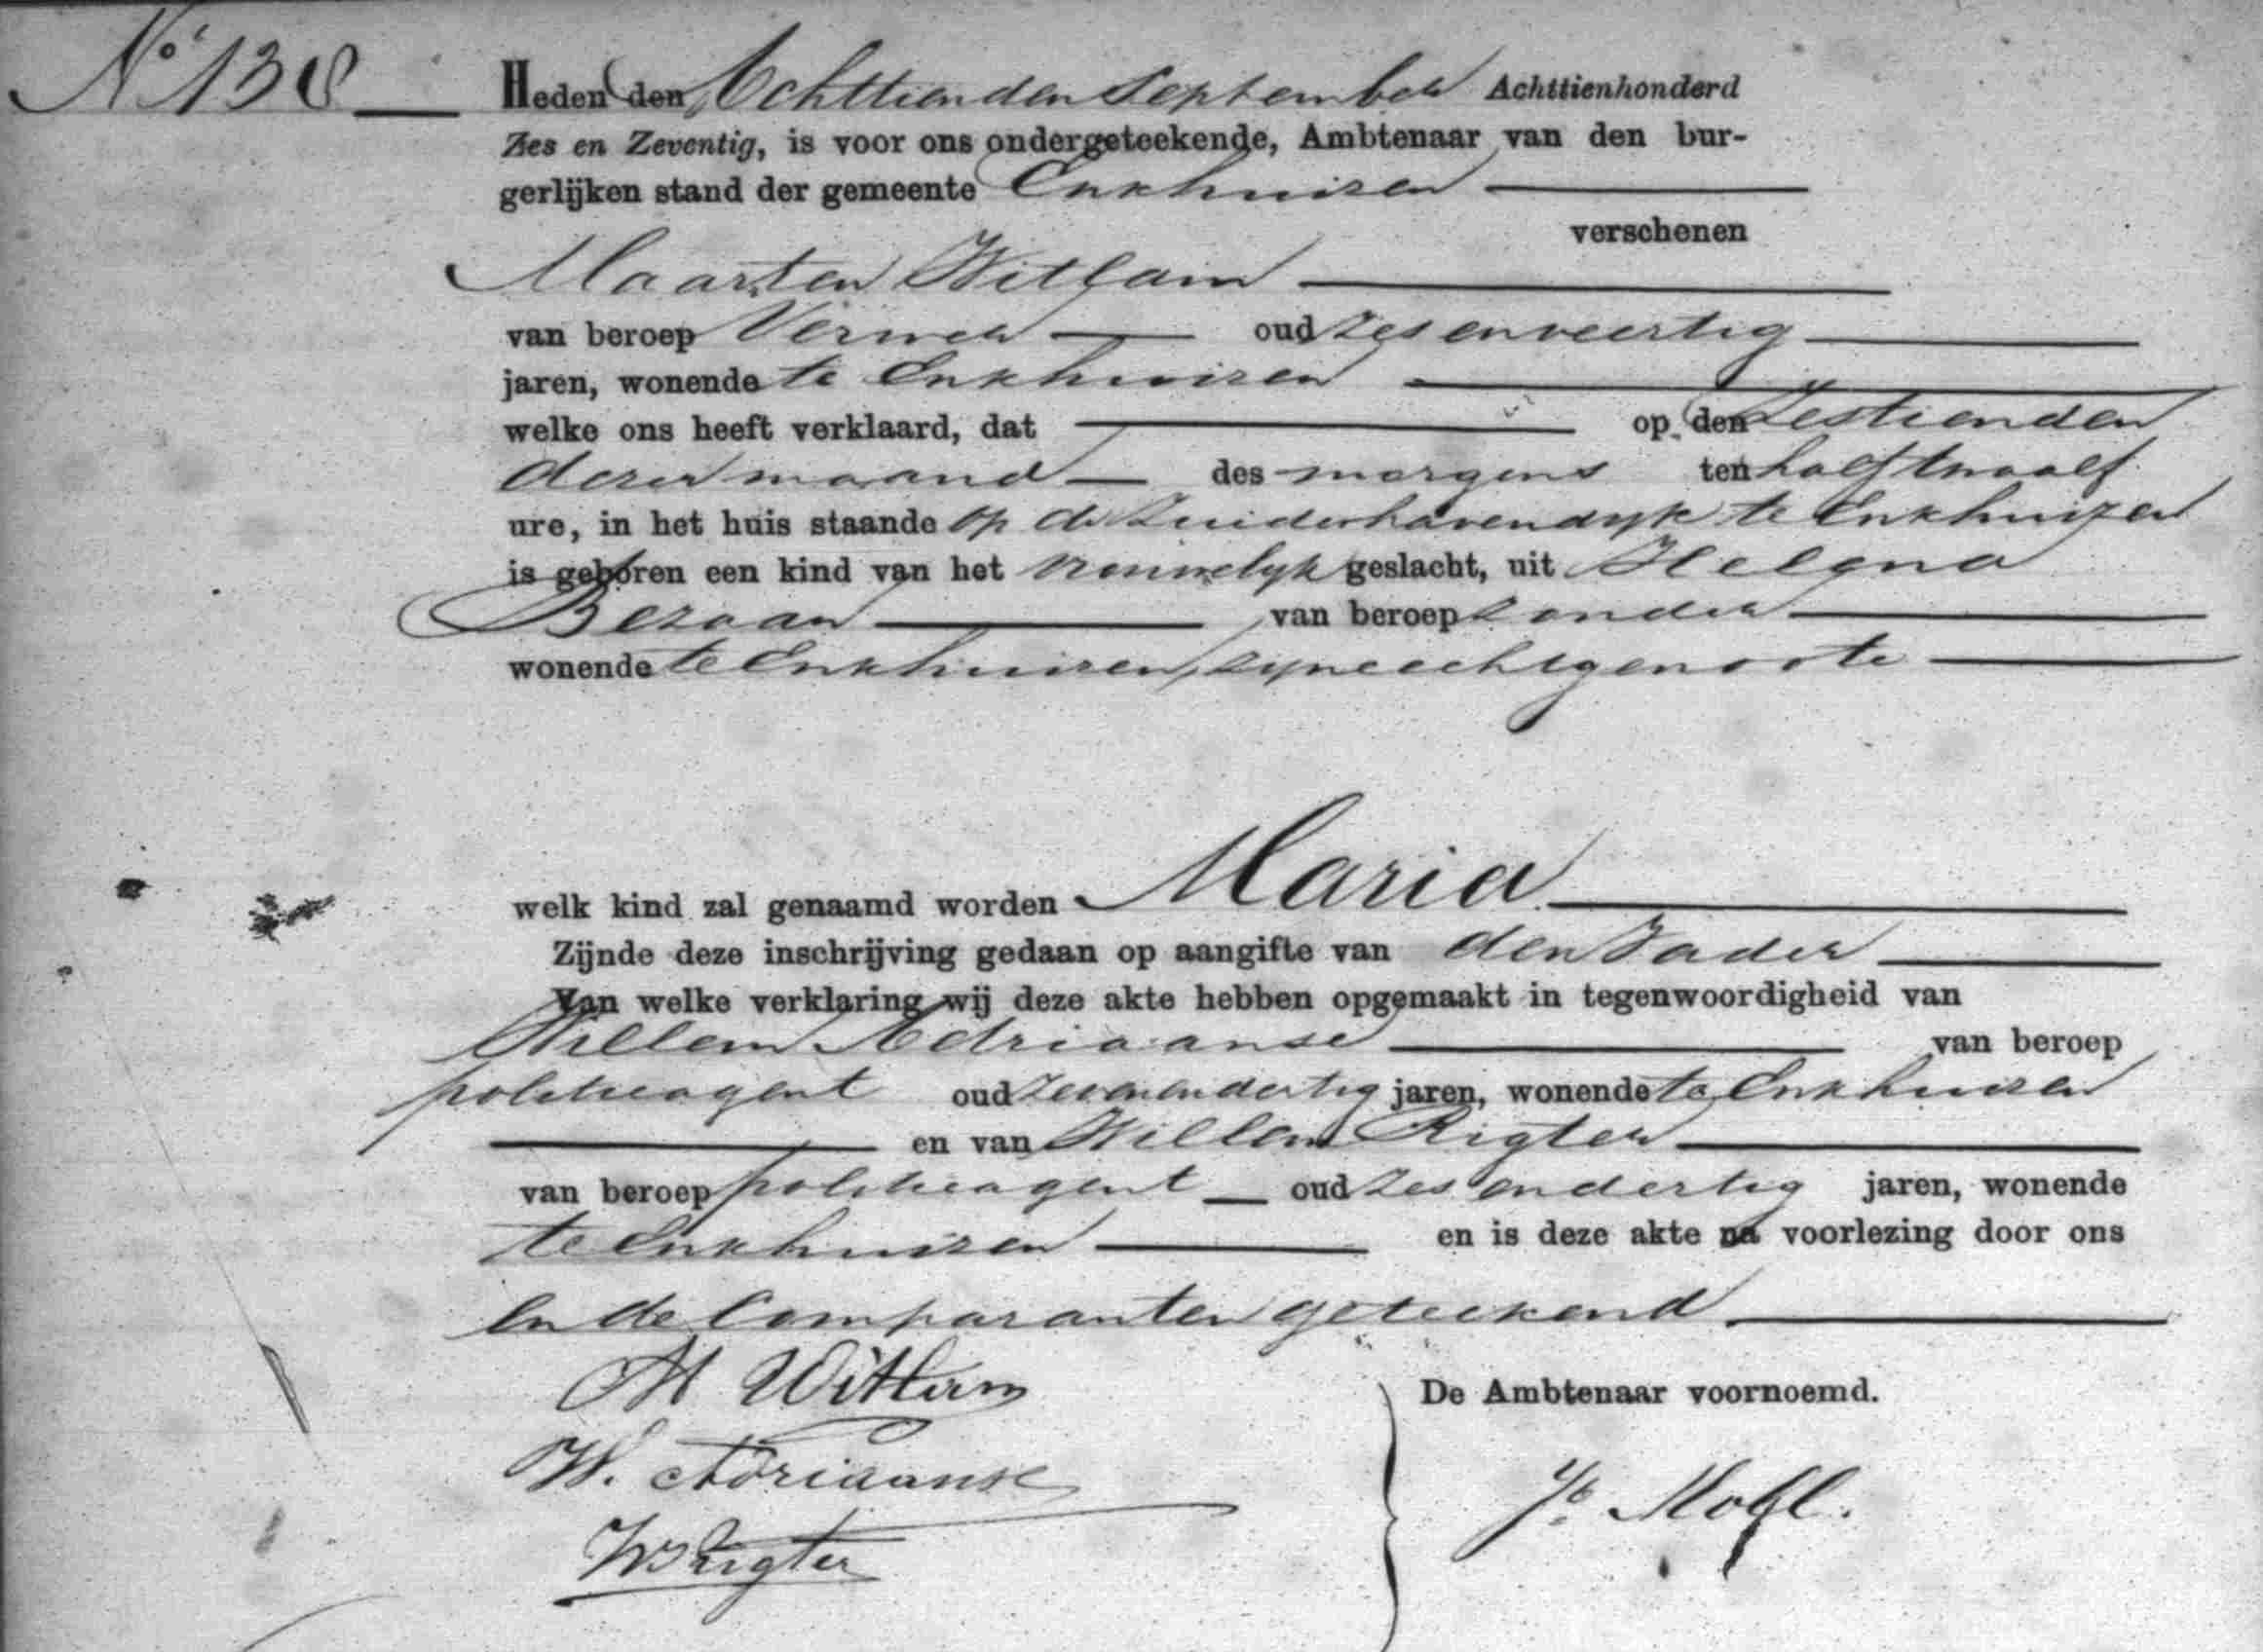 No 138
Heden den Achttienden September Achttienhonderd
Zes en Zeventig, is voor ons ondergeteekende, Ambtenaar van den bur-
gerlijken stand der gemeente Enkhuizen
verschenen
Maarten Witlam
van beroep Verwer oud zesenveertig
jaren, wonende te Enkhuizen
welke ons heeft verklaard, dat op den Zestienden
dezer maand des morgens ten half twaalf
ure, in het huis staande op de Zuiderhavendyk te Enkhuizen
is geboren een kind van het vrouwelyk geslacht, uit
Bezaan van beroep zonder
wonende te Enkhuizen, zyne echtgenoote
welk kind zal genaamd worden Maria
Zijnde deze inschrijving gedaan op aangifte van den Vader
Van welke verklaring wij deze akte hebben opgemaakt in tegenwoordigheid van
Willem Adriaanse van beroep
politieagent oud zevenendertig jaren, wonende te Enkhuizen
en van Willem Rigter
van beroep politieagent oud zesendertig jaren, wonende
te Enkhuizen en is deze akte na voorlezing door ons
en de Comparanten geteekend
M Witlam
De Ambtenaar voornoemd.
W. Adriaanse
W Rigter